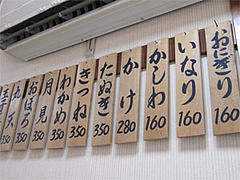 おにぎり 160
いなり 160
かしわ 160
かけ 280
たぬき 350
きつね 350
わかめ 350
おぼろ 350
月見 350
350
350